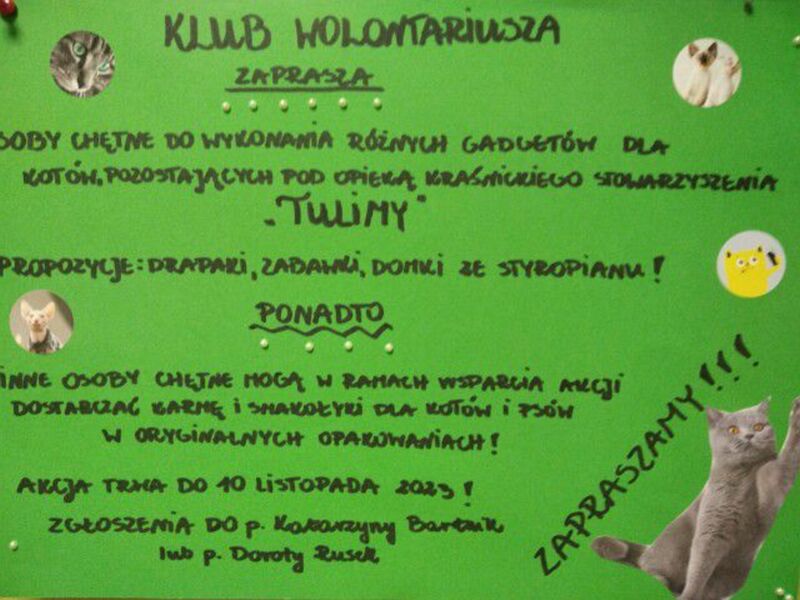 KLUB WOLONTARIUSZA
ZAPRASZA
OSOBY CHĘTNE DO WYKONANIA RÓŻNYCH GADGETÓW DLA
KOTÓW, POZOSTAJĄCYCH POD OPIEKĄ KRAŚNICKIEGO STOWARZYSZENIA
„TULIMY"
PROPOZYCJE: DRAPAKI, ZABAWKI, DOMKI ZE STYROPIANU!
PONADTO
INNE OSOBY CHĘTNE MOGĄ W RAMACH WSPARCIA AKCJI
DOSTARCZAĆ KARMĘ I SMAKOŁYKI DLA KOTÓW I PSÓW
W ORYGINALNYCH OPAKOWANIACH!
AKCJA TRWA DO 10 LISTOPADA 2023!
ZGŁOSZENIA DO p. Katarzyny Bartnik
lub p. Doroty Rusek
ZAPRASZAMY!!!